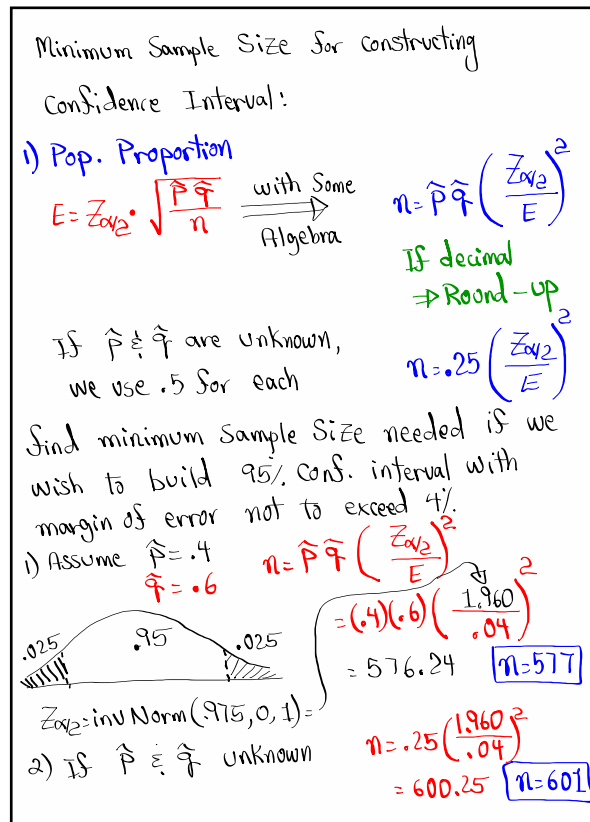 Minimum Sample Size for constructing
Confidence Interval:
1) Pop. Proportion
E = Z_{α/2} · √(p̂ q̂ / n) with Some Algebra ⇒ n = p̂ q̂ (Z_{α/2} / E)²
If decimal
⇒ Round-up
If p̂ & q̂ are unknown,
we use .5 for each
n = .25 (Z_{α/2} / E)²
find minimum Sample Size needed if we
wish to build 95% Conf. interval with
margin of error not to exceed 4%.
1) Assume p̂ = .4
q̂ = .6
n = p̂ q̂ (Z_{α/2} / E)²
= (.4)(.6) (1.960 / .04)²
= 576.24 n=577
.025 .95 .025
Z_{α/2} = invNorm(.975, 0, 1) =
2) If p̂ & q̂ unknown
n = .25 (1.960 / .04)²
= 600.25 n=601